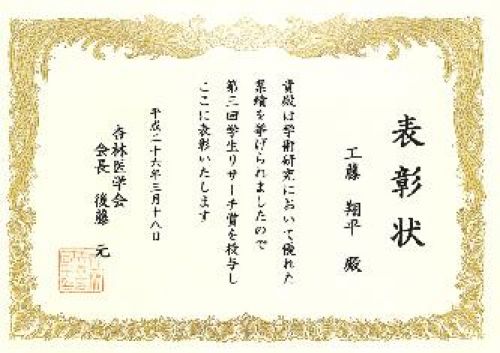 表彰状
工藤 翔平 殿
貴殿は学術研究において優れた
業績を挙げられましたので
第三回学生リサーチ賞を授与し
ここに表彰いたします
平成二十六年三月十八日
杏林医学会
会長 後藤 元